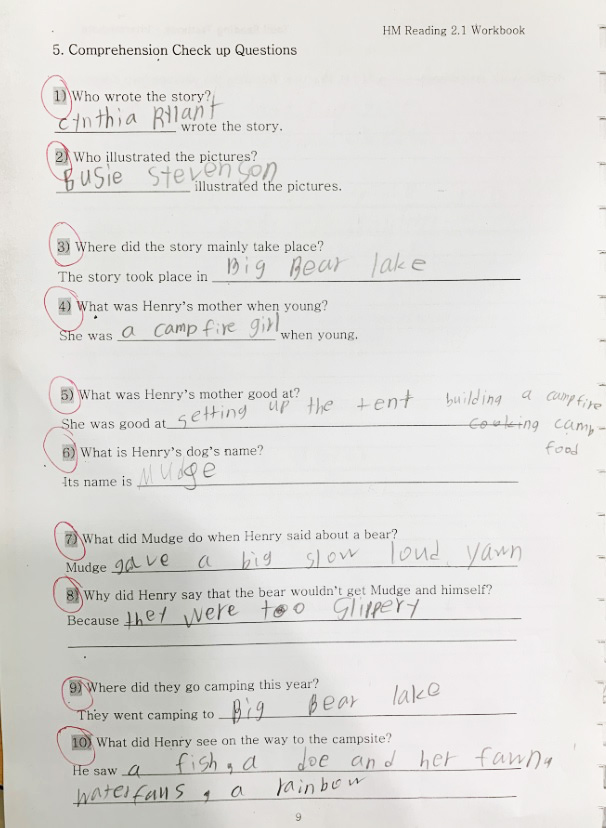 HM Reading 2.1 Workbook
5. Comprehension Check up Questions
1) Who wrote the story?
Cynthia Rylant wrote the story.
2) Who illustrated the pictures?
Busie Stevenson illustrated the pictures.
3) Where did the story mainly take place?
The story took place in Big Bear lake
4) What was Henry's mother when young?
She was a camp fire girl when young.
5) What was Henry's mother good at?
She was good at setting up the tent building a campfire
cooking camp-
food
6) What is Henry's dog's name?
Its name is Mudge
7) What did Mudge do when Henry said about a bear?
Mudge gave a big slow loud yawn
8) Why did Henry say that the bear wouldn't get Mudge and himself?
Because they were too Glippery
9) Where did they go camping this year?
They went camping to Big Bear lake
10) What did Henry see on the way to the campsite?
He saw a fish, a doe and her fawn,
waterfalls, a rainbow
9